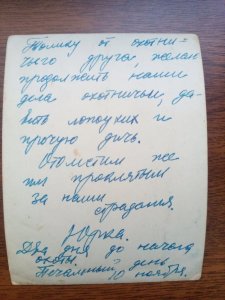 Толику от охотни-
чьего друга, желаю
продолжить наши
дела охотничьи, да-
вить лопоухих и
прочую дичь.
Отомстим же
им проклятым
за наши
страдания.
Юрка.
Два дня до начала
охоты.
Печальный день
10 ноября.